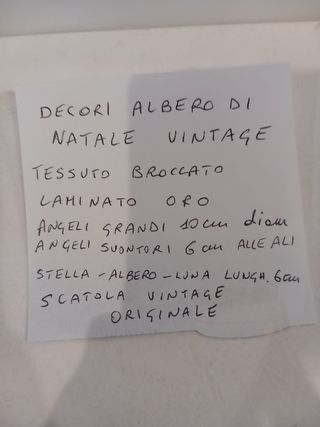 DECORI ALBERO DI
NATALE VINTAGE
TESSUTO BROCCATO
LAMINATO ORO
ANGELI GRANDI 10 cm diam
ANGELI SUONTORI 6 cm ALLE ALI
STELLA - ALBERO - LUNA LUNGH. 6 cm
SCATOLA VINTAGE
ORIGINALE